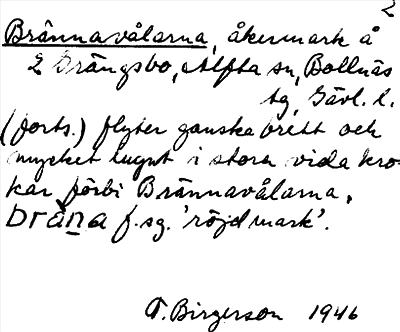 2
Brännavålarna, åkermark å
2 Grängsbo, Alfta sn, Bollnäs
tg, Gävl. l.
(forts.) flyter ganska brett och
mycket lugnt i stora vida kro-
kar förbi Brännavålarna.
bräna f. sg. 'röjd mark'.
T. Birgerson 1946